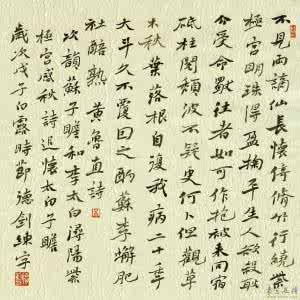 不見兩謫仙長懷倚脩竹行繞紫
極宮明珠得盈掬平生人欲殺耿
介受命獨往者如可作抱被來同宿
砥柱閱頹波不疑更何卜但觀草
木秋葉落根自復我病二十年
大斗久不覆因之酌蘇李蟹肥
社醅熟 黃魯直詩
次韻蘇子瞻和李太白潯陽紫
極宮感秋詩追懷太白子瞻
歲次戊子白露時節德劍練字